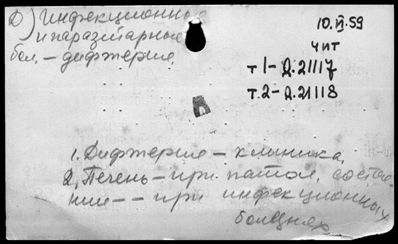 Д) Инфекционные
и паразитарные
бол. – дифтерия
10.VI.59
чит
т 1 – Д.21117
т.2 – Д.21118
1. Дифтерия – клиника.
2. Печень – при патол. состоя-
нии – – при инфекционных
болезнях